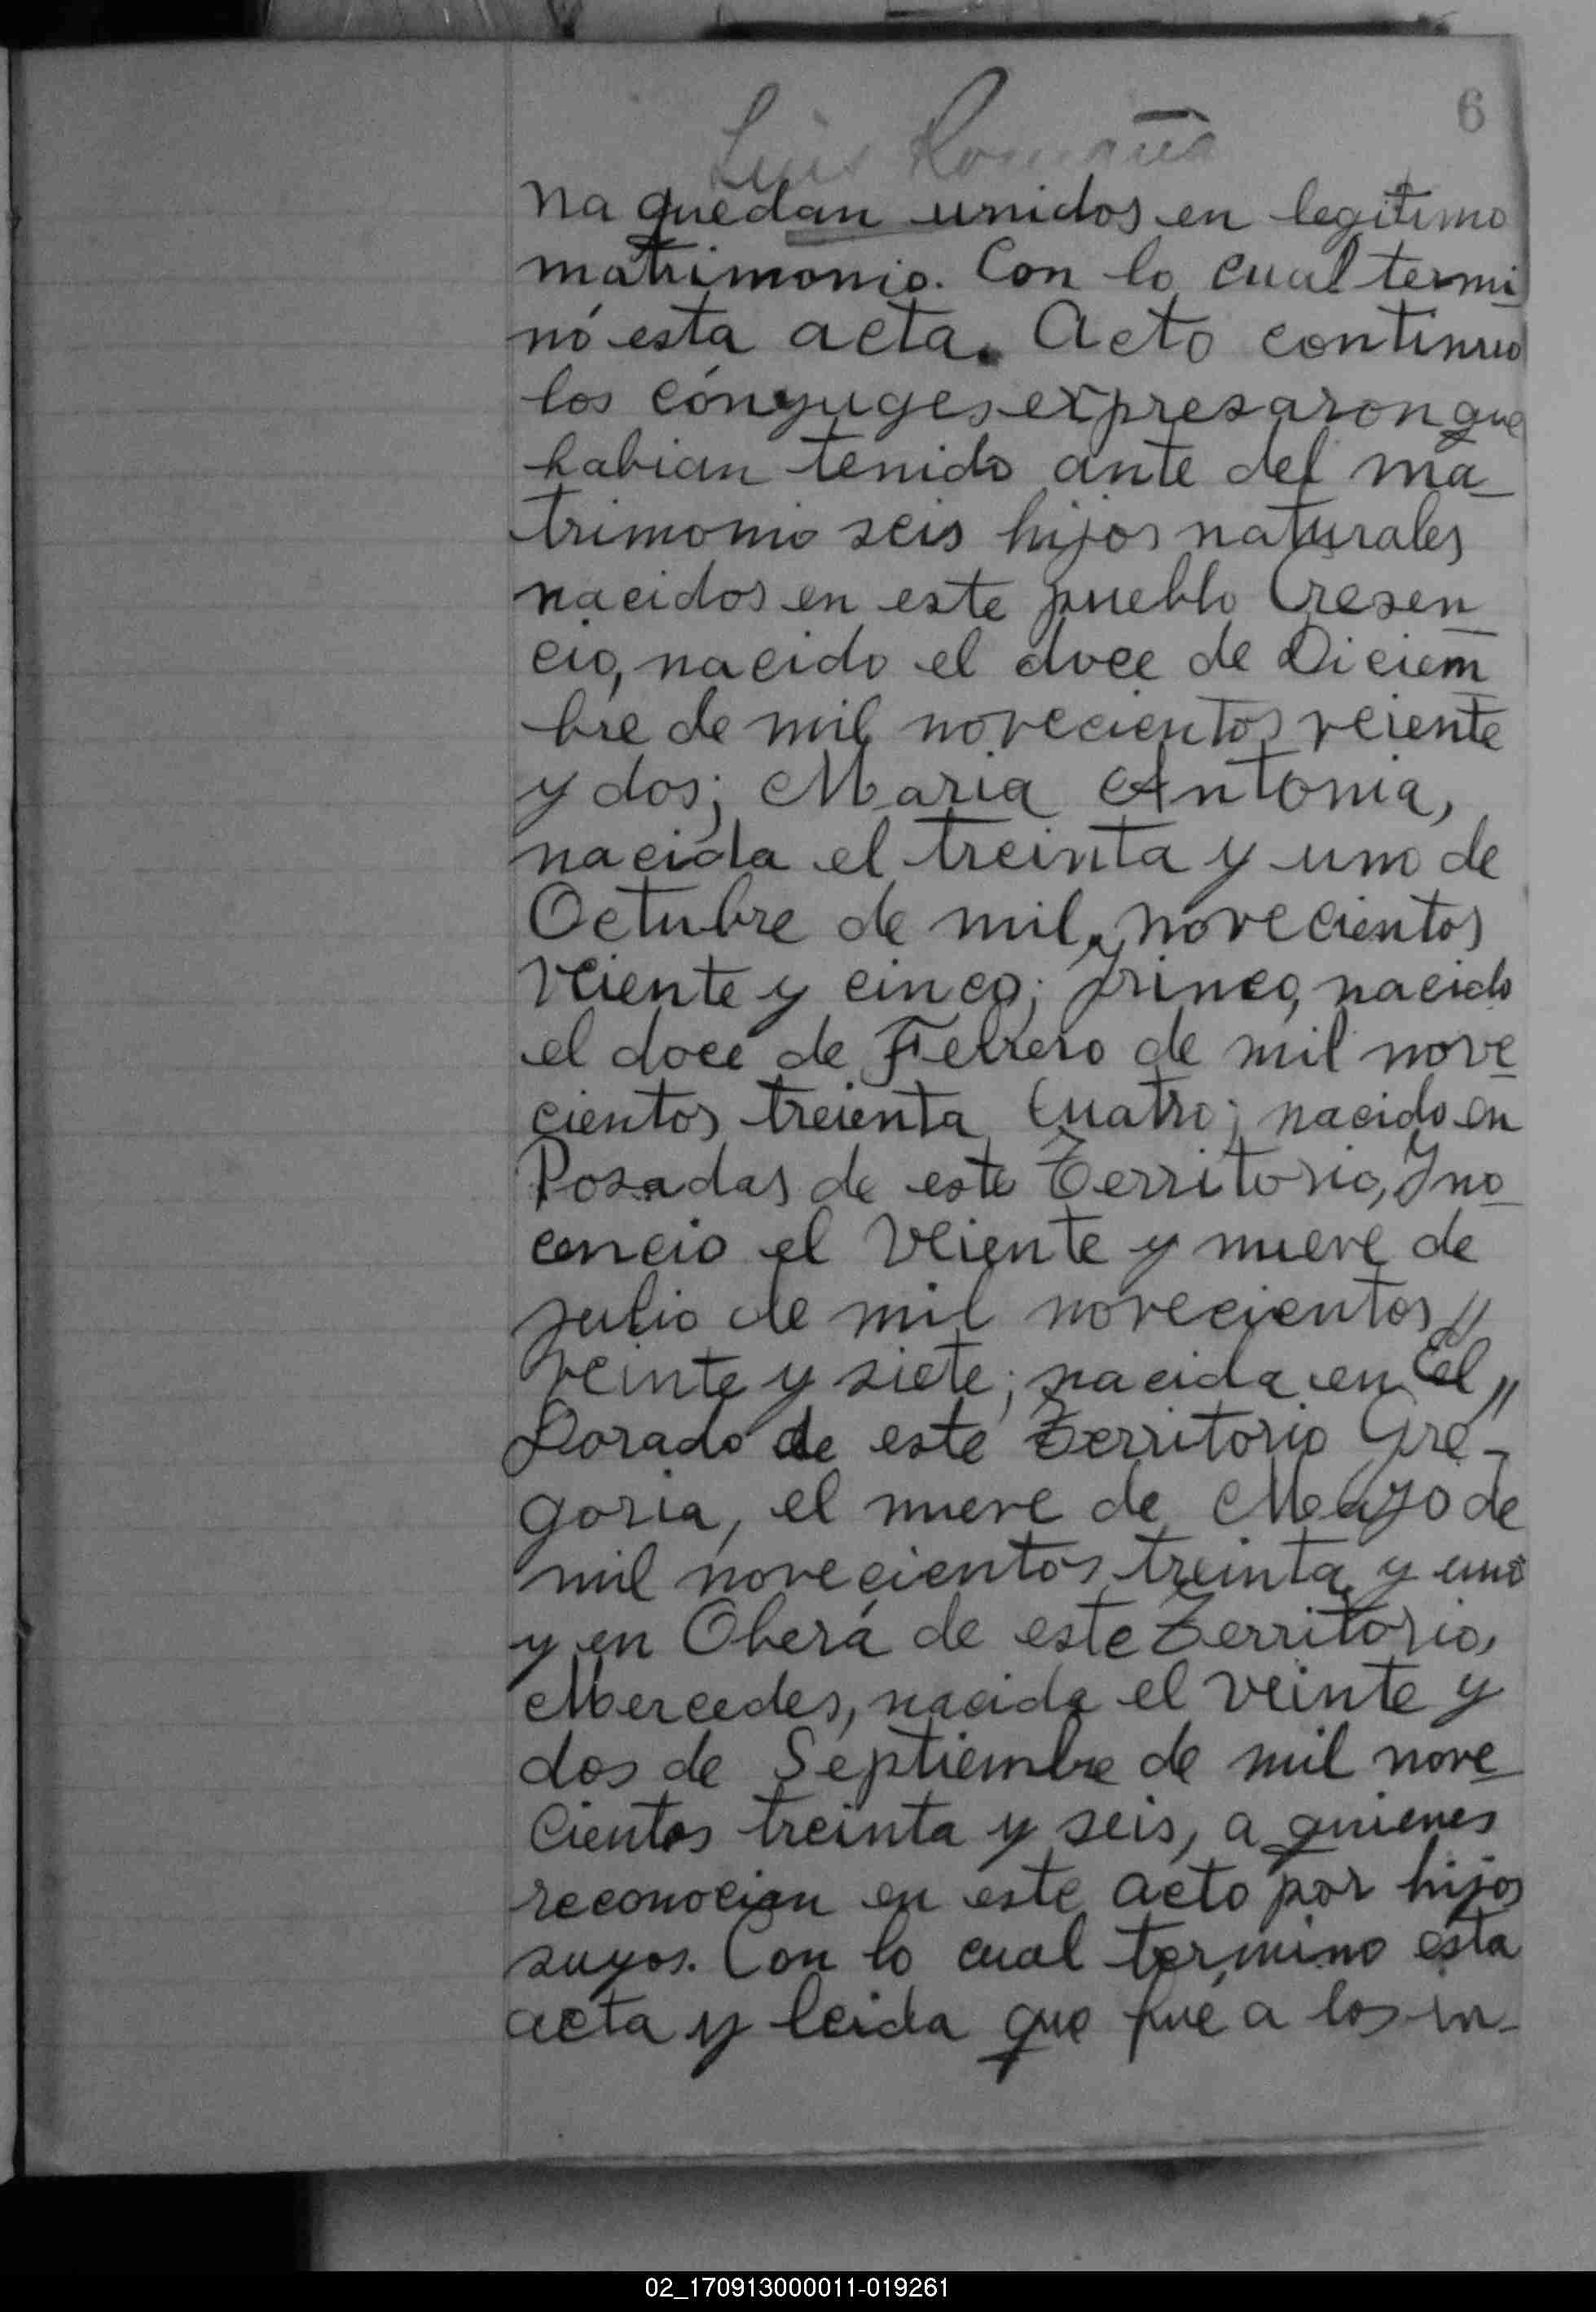 6
Luis Romaña
na quedan unidos en legitimo
matrimonio. Con lo cual termi
nó esta acta. Acto continuo
los cónyuges expresaron que
habian tenido ante del ma_
trimonio seis hijos naturales
nacidos en este pueblo Cresen_
cio, nacido el doce de Diciem_
bre de mil novecientos veiente
y dos; Maria Antonia,
nacida el treinta y uno de
Octubre de mil novecientos
veiente y cinco; nacido
el doce de Febrero de mil nove_
cientos treienta cuatro; nacido en
Posadas de este Territorio, Ino_
cencio el veiente y nueve de
julio de mil novecientos //
veinte y siete; nacida en El //
Dorado de este Territorio Gre-
goria, el nueve de Mayo de
mil novecientos treinta y uno
y en Oberá de este Territorio,
Mercedes, nacida el veinte y
dos de Septiembre de mil nove_
cientos treinta y seis, a quienes
reconocian en este acto por hijos
suyos. Con lo cual termino esta
acta y leida que fué a los in-
02_170913000011-019261